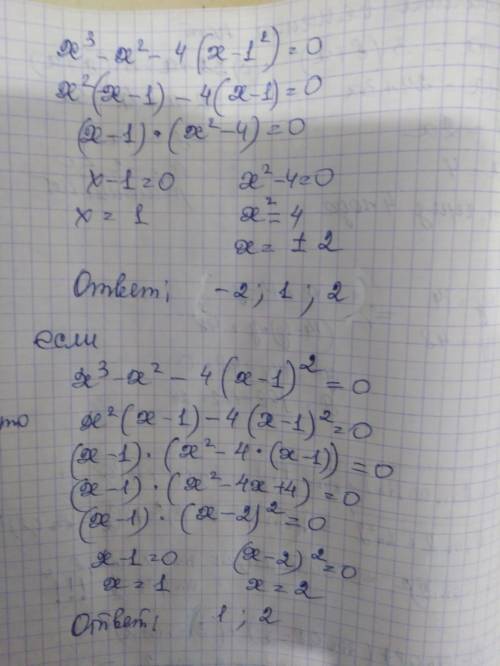 x³ - x² - 4(x - 1²) = 0
x²(x-1) - 4(x-1) = 0
(x-1)·(x²-4) = 0
x-1=0 x²-4=0
x = 1 x² = 4
x = ±2
Ответ: -2; 1; 2
если
x³ - x² - 4(x-1)² = 0
то x²(x-1) - 4(x-1)² = 0
(x-1)·(x² - 4·(x-1)) = 0
(x-1)·(x² - 4x + 4) = 0
(x-1)·(x-2)² = 0
x-1=0 (x-2)² = 0
x = 1 x = 2
Ответ: 1; 2